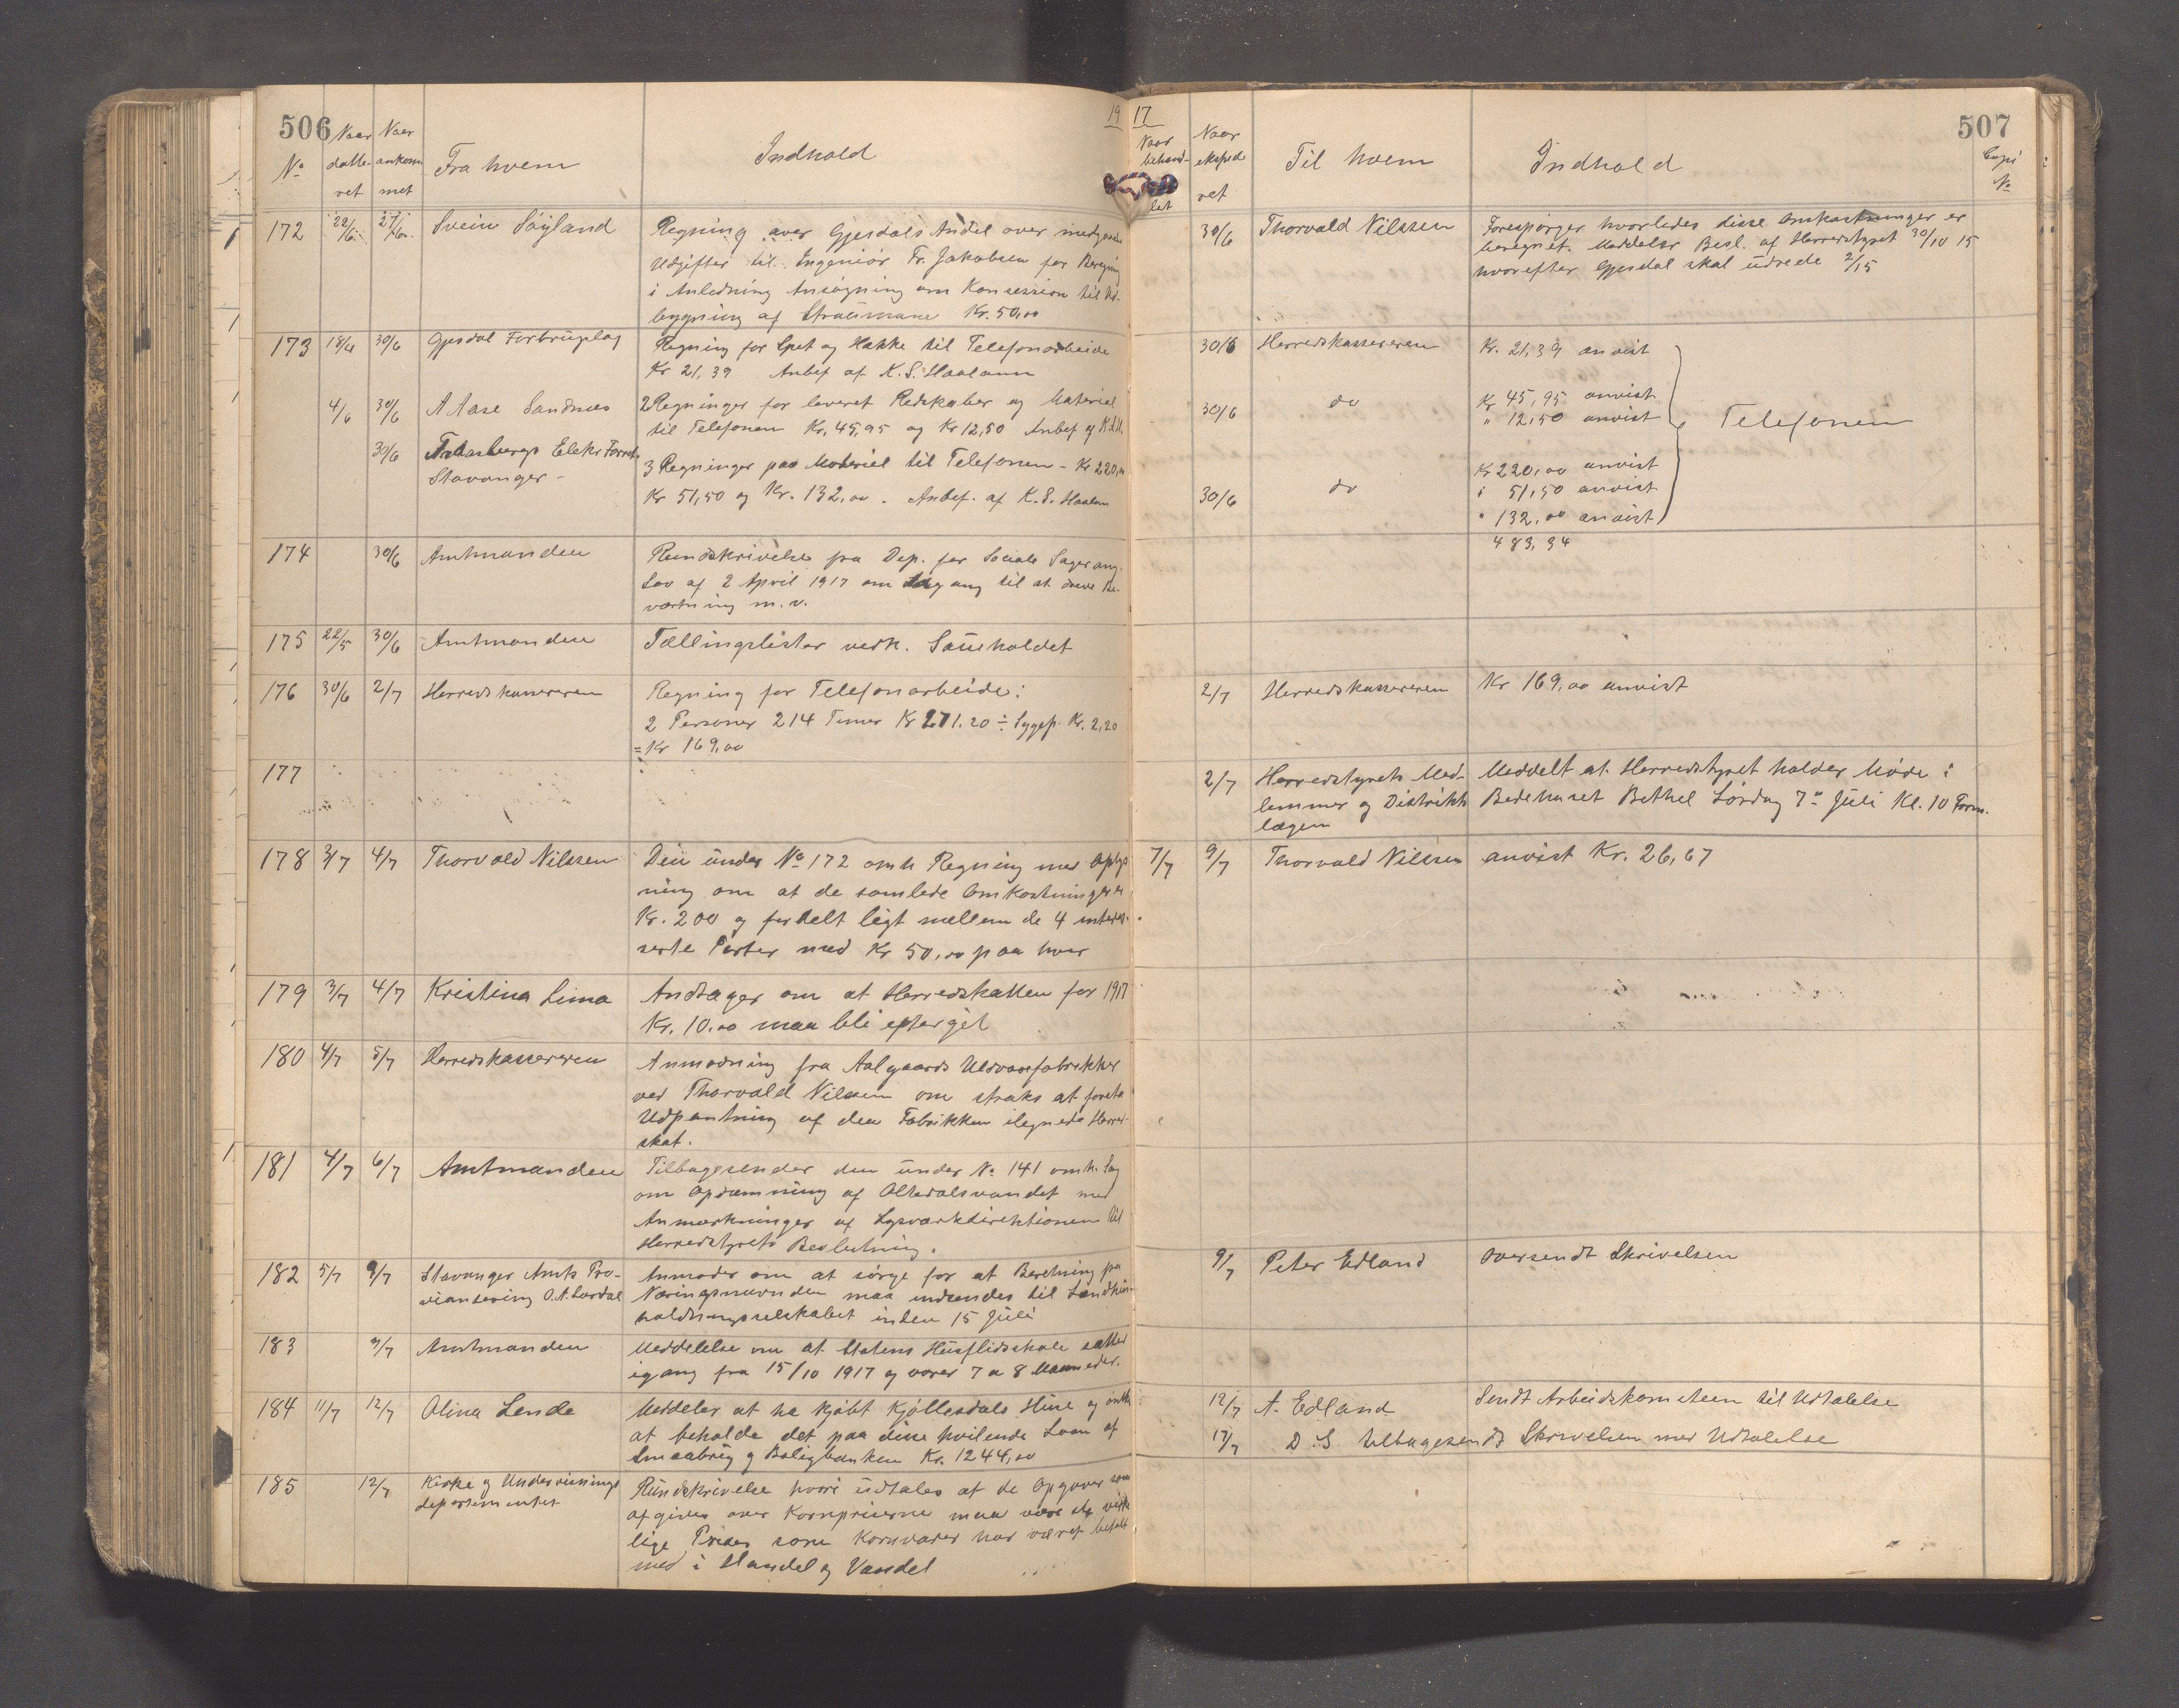 506
19
No
Naar datteret
Naar ankommet
Fra hvem
Indhold
172 22/6 27/6 Svein Söyland
Regning over Gjesdals Andel over
Udgifter til Ingeniör Fr. Jakobsen for
i Anledning Ansögning om Konsession til
bygning af Kr. 50,00
173 18/4 30/6 Gjesdal Forbruglag
Regning for Spet og Hakke til Telefonarbeide
Kr 21,39 Anbef af K. S. Haaland
4/6 30/6 A Aase Sandnes
2 Regninger for leveret Redskaber og Materiel
til Telefonen Kr. 45,95 og Kr 12,50 Anbef af K.S.H.
30/6 Elektr Forretn
Stavanger -
3 Regninger paa Materiel til Telefonen - Kr 220,00
Kr 51,50 og Kr. 132,00. Anbef. af K. S. Haaland
174 30/6 Amtmanden
Rundskrivelse fra Dep. for Sociale Sager ang.
Lov af 2 April 1917 om Adgang til at drive Be-
værtning m.v.
175 22/5 30/6 Amtmanden
Tællingslister vedk. Saueholdet
176 30/6 2/7 Herredskassereren
Regning for Telefonarbeide:
2 Personer 214 Timer Kr 171.20 ÷ Sygep. Kr. 2,20
= Kr 169,00
177
178 3/7 4/7 Thorvald Nilssen
Den under No 172 omh Regning med Oplys
ning om at de samlede Omkostninger er
Kr. 200 og fordelt ligt mellem de 4 interes-
serte Parter med Kr 50,00 paa hver
179 3/7 4/7 Kristina Lima
Andrager om at Herredskatten for 1917
Kr. 10.00 maa bli eftergit
180 4/7 5/7 Herredskassereren
Anmodning fra Aalgaards Uldvarefabrikker
ved Thorvald Nilssen om straks at foreta
Udpantning af den Fabrikken ilignede Herred-
skat.
181 4/7 6/7 Amtmanden
Tilbagesender den under No 141 omh. Sag
om Opdæmning af Oltedalsvandet med
Anmærkninger af Lysværkdirektionen til
Herredstyrets Beslutning.
182 5/7 9/7 Stavanger Amts Pro-
viantering O. A. Lærdal
Anmoder om at sörge for at Beretning fra
Næringsnævnden maa indsendes til Landhus
holdningsselskabet inden 15 Juli
183 9/7 Amtmanden
Meddelelse om at Statens Husflidsskole sættes
igang fra 15/10 1917 og varer 7 a 8 Maaneder.
184 11/7 12/7 Olina Lende
Meddeler at ha kjöbt Kjöllesdals Hus og önske
at beholde det paa dette hvilende Laan af
Smaabrug og Boligbanken Kr. 1244,00
185 12/7 Kirke og Undervisnings
departementet
Rundskrivelse hvori udtales at de Opgaver som
afgives over Kornpriserne maa være de virke
lige Priser som Kornvarer har været betalt
med i Handel og Vandel
17
507
Naar behandlet
Naar ekspederet
Til hvem
Indhold
Copi No
30/6 Thorvald Nilssen
Forespörger hvorledes disse Omkostninger er
beregnet. Meddeler Besl. af Herredstyret 30/10 15
hvorefter Gjesdal skal udrede 2/15
30/6 Herredskassereren Kr. 21,39 anvist
30/6 do Kr 45,95 anvist
" 12,50 anvist
Telefonen
30/6 do Kr 220,00 anvist
" 51,50 anvist
" 132,00 anvist
483,34
2/7 Herredskassereren Kr 169,00 anvist
2/7 Herredstyrets Med-
lemmer og Distrikts
lægen
Meddelt at Herredstyret holder Möde i
Bedehuset Bethel Lördag 7de Juli Kl. 10 Form.
7/7 9/7 Thorvald Nilssen anvist Kr. 26,67
9/7 Peter Edland oversendt Skrivelsen
12/7 A. Edland Sendt Arbeidskomiteen til Udtalelse
17/7 D. S tilbagesendt Skrivelsen med Udtalelse